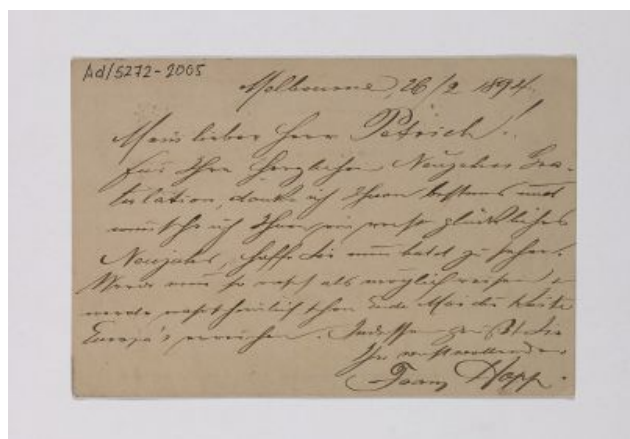 Ad/5272-2005
Melbourne, 26/2 1894.
Mein lieber Herr Petrich!
Für Ihre herzlichen Neujahrs Gra-
tulation, danke ich Ihnen bestens und
wünsche ich Ihnen ein recht glückliches
Neujahr, hoffe Sie nun bald zu sehen.
Werde nun so rasch als möglich reisen &
werde wahrscheinlich schon Ende Mai die Küste
Europa's erreichen. Indessen grüßt Sie
Ihr
Franz Hopp.